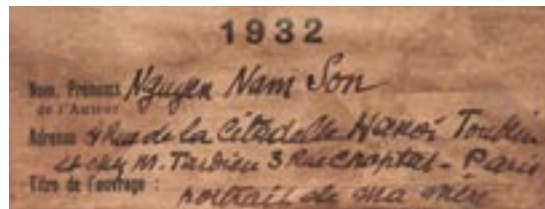 1932
Nom, Prénoms Nguyen Nam Son
de l'Auteur
Adresse 4 Rue de la Citadelle Hanoï Tonkin
et chez M. Tardieu 3 Rue Chaptal - Paris
Titre de l'ouvrage : portrait de ma mère